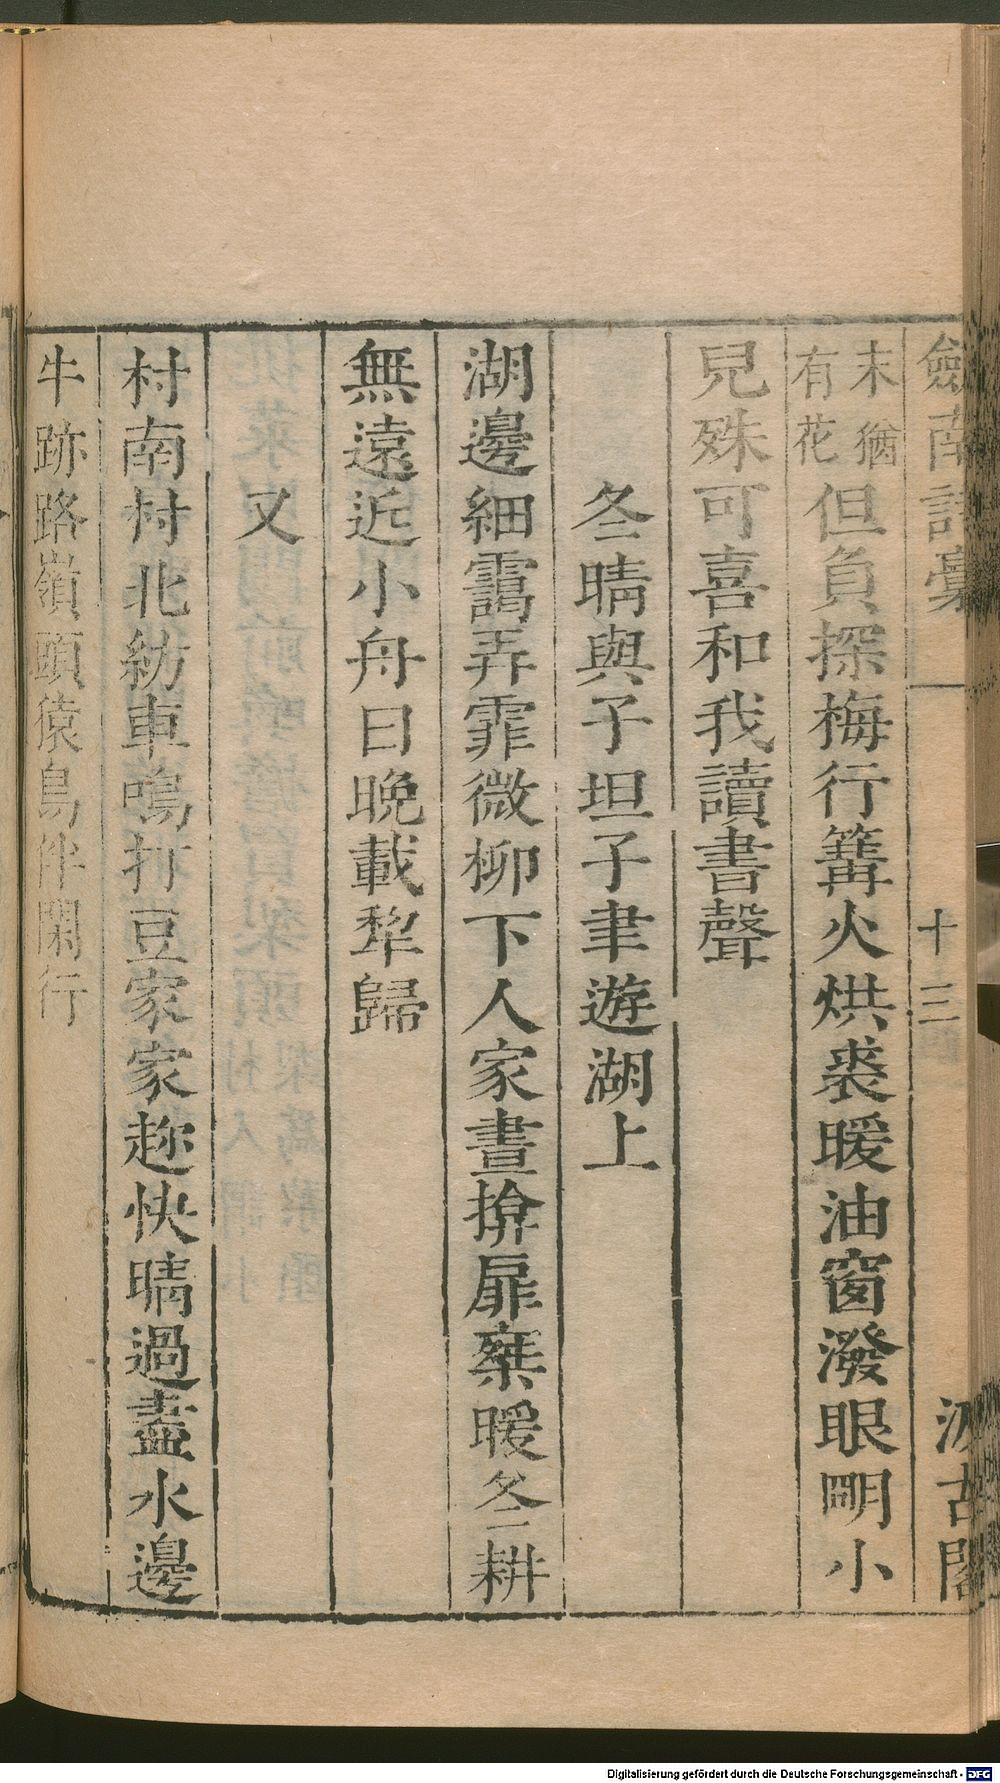 劒南詩稾 十三 汲古閣
末猶
有花
但負探梅行篝火烘裘暖油窗潑眼明小
兒殊可喜和我讀書聲
冬晴與子坦子聿遊湖上
湖邊細靄弄霏微柳下人家晝揜扉乘暖冬耕
無遠近小舟日晚載犂歸
又
村南村北紡車鳴打豆家家趂快晴過盡水邊
牛跡路嶺頭猿鳥伴閑行
Digitalisierung gefördert durch die Deutsche Forschungsgemeinschaft - DFG